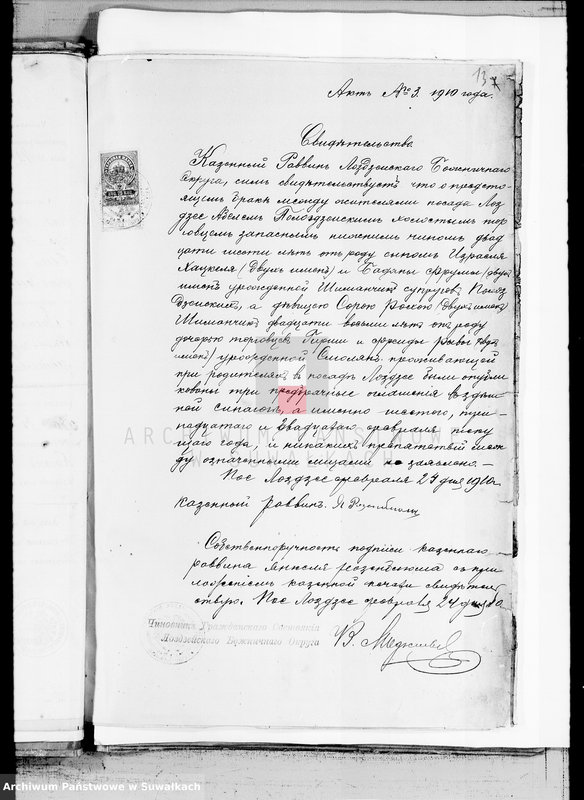 13
Актъ № 3. 1910 года.
Свидѣтельство
Казенный Раввинъ Лоздзейскаго Божничнаго
Округа, симъ свидѣтельствуетъ что о предсто-
ящемъ бракѣ между жителями посада Лоз
дзее Абелемъ холостымъ тор
говцемъ запаснымъ нижнимъ чиномъ двад
цати шести лѣтъ отъ роду сыномъ Израеля
Хацкеля (двухъ именъ) и Фрумы (двухъ
именъ урожденной Шиманчикъ супруговъ
а дѣвицею Сорою Рохою (двухъ именъ)
Шиманчикъ двадцати восьми лѣтъ отъ роду
дочерью торговцевъ Гирши и Фрейды Ривы (двухъ
именъ) урожденной Смолянъ проживающей
при родителяхъ въ посадѣ Лоздзее были опубли
кованы три предбрачные оглашенія въ здѣш-
ной синагогѣ, а именно шестого, три-
надцатаго и двадцатаго февраля теку
щаго года, и никакихъ препятствій меж
ду означенными лицами не заявлено. —
Пос Лоздзее февраля 24 дня 1910г.
казенный раввинъ
Собственноручность подписи казеннаго
раввина съ при
ложеніемъ казенной печати свидѣтель
ствую. Пос Лоздзее февраля 24 дня
Чиновникъ Гражданскаго Состоянія
Лоздзейскаго Божничнаго Округа
ARCHIWUM PAŃSTWOWE
W SUWAŁKACH
Archiwum Państwowe w Suwałkach